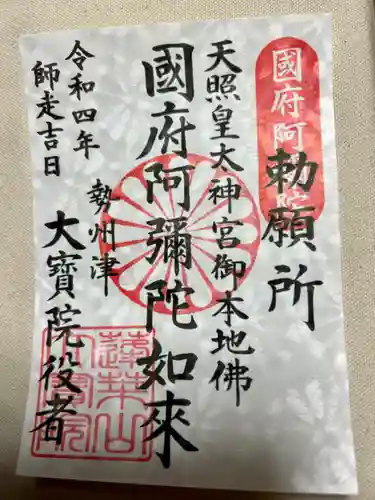 勅願所
國府阿
天照皇大神宮御本地佛
國府阿彌陀如來
勢州津
大寶院役者
令和四年
師走吉日